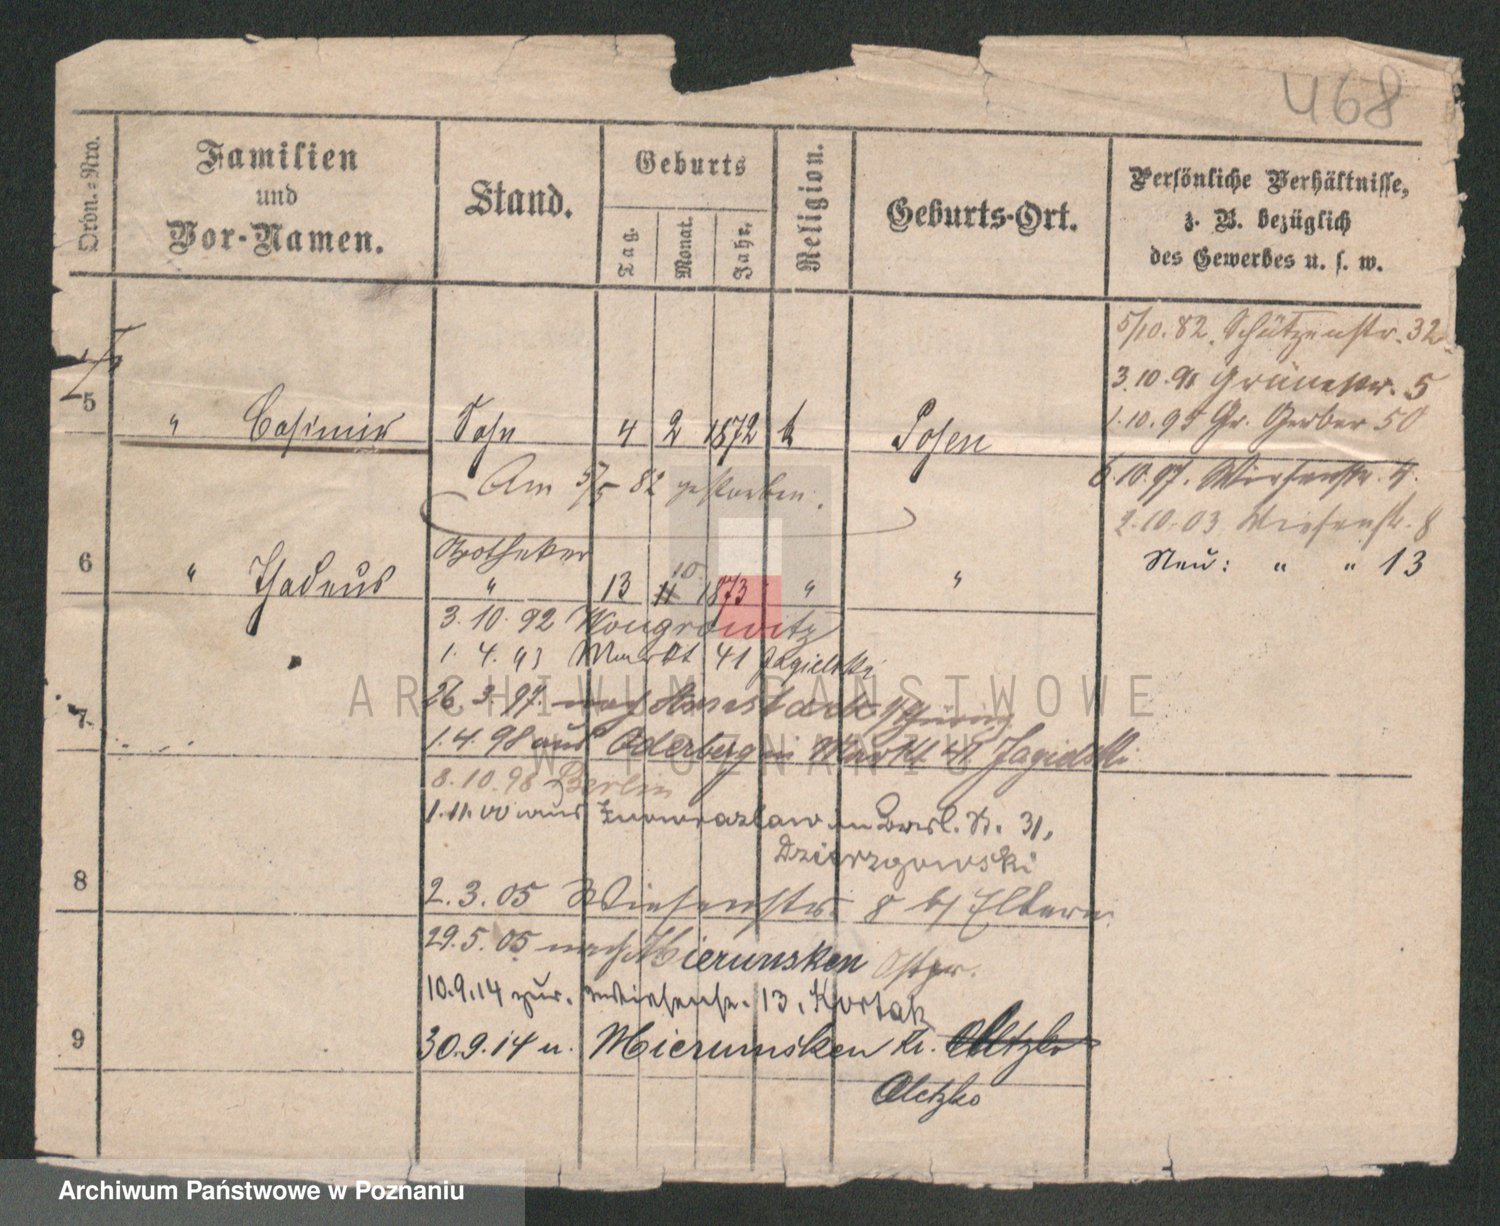 468
Ordn.-Nro.
Familien
und
Vor-Namen.
Stand.
Geburts
Tag.
Monat.
Jahr.
Religion.
Geburts-Ort.
Persönliche Verhältnisse,
z. B. bezüglich
des Gewerbes u. s. w.
5/10. 82. Schützenstr. 32
3.10.91 Grünestr. 5
1.10.95 Gr. Gerber 50
5 " Casimir Sohn 4 2 1872 k Posen
6.10.97. Wiesenstr. 4.
Am 5/5 82 gestorben.
2.10.03 Wiesenstr. 8
Neu: " " 13
Apotheker
6 " Thadeus " 13 11 10 1873 " "
3.10.92 Wongrowitz
1. 4. 93 Markt 41 Jagielski
7
26.3.97. nach
1.4.98 aus Oderberg n Markt 41 Jagielski
8.10.98 Berlin
1.11.00 aus Inowrazlaw n Bresl. St. 31,
Dzierzgowski
8
2.3.05 Wiesenstr. 8 b/ Eltern
29.5.05 nach Mierunsken Ostpr.
10.9.14 zur. Wiesenstr. 13, Kortak
9
30.9.14 n. Mierunsken Kr. Oletzko
Oletzko
ARCHIWUM PAŃSTWOWE
W POZNANIU
Archiwum Państwowe w Poznaniu